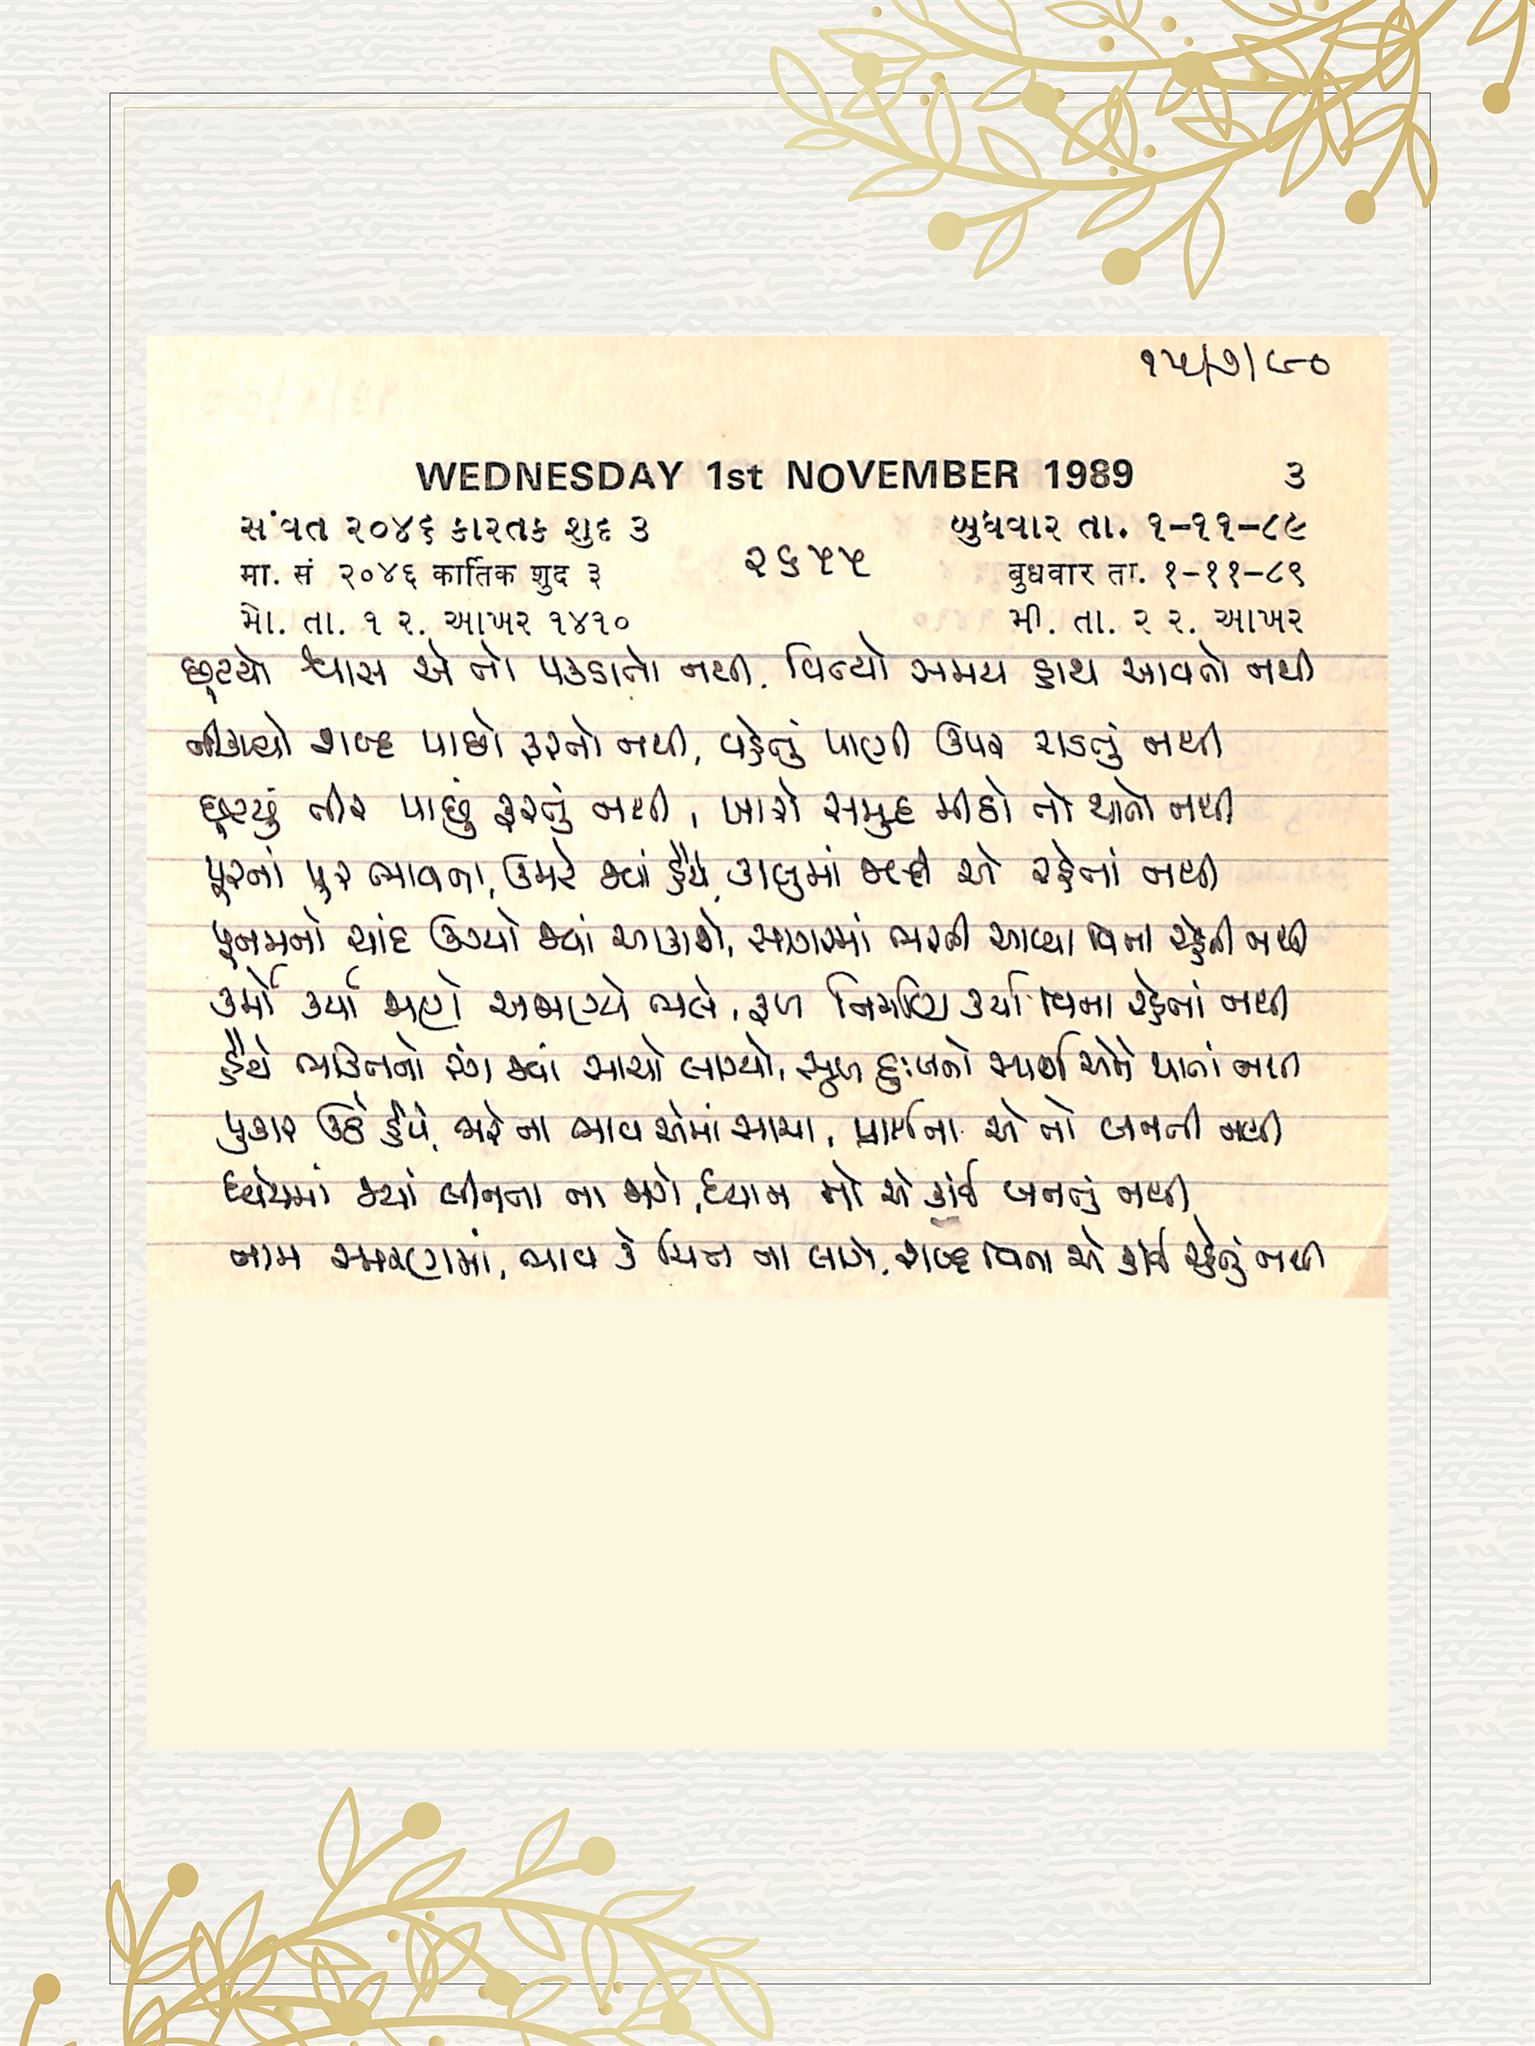 ૧૫/૭/૯૦
WEDNESDAY 1st NOVEMBER 1989 ૩
સંવત ૨૦૪૬ કારતક શુદ ૩ બુધવાર તા. ૧-૧૧-૮૯
मा. सं २०४६ कार्तिक शुद ३ ૨૬૫૫ बुधवार ता. १-११-८९
મો. તા. ૧ ૨. આખર ૧૪૧૦ મી. તા. ૨ ૨. આખર
છૂટયો શ્વાસ એ તો પકડાતો નથી. વિત્યો સમય હાથ આવતો નથી
નીકળ્યો શબ્દ પાછો ફરતો નથી, વહેતું પાણી ઉપર ચડતું નથી
છૂટયું તીર પાછું ફરતું નથી, ખારો સમુદ્ર મીઠો તો થાતો નથી
પૂરનાં પુર ભાવના, ઉમટે જ્યાં હૈયે, કાબુમાં જલ્દી એ રહેતાં નથી
પુનમનો ચાંદ ઉગ્યો જ્યાં આકાશે, સાગરમાં ભરતી આવ્યા વિના રહેતી નથી
કર્મો કર્યા જાણે અજાણ્યે ભલે, ફળ નિર્માણ કર્યા વિના રહેતાં નથી
હૈયે ભક્તિનો રંગ જ્યાં સાચો લાગ્યો, સુખ દુઃખનો સ્પર્શ એને થાતાં નથી
પુકાર ઉઠે હૈયે, ભરે ના ભાવ એમાં સાચા, પ્રાર્થના એ તો બનતી નથી
ધ્યેયમાં જ્યાં લીનતા ના જાગે, ધ્યાન તો એ કાંઈ બનતું નથી
નામ સ્મરણમાં, ભાવ કે ચિત્ત ના લાગે, શબ્દ વિના એ કાંઈ રહેતું નથી